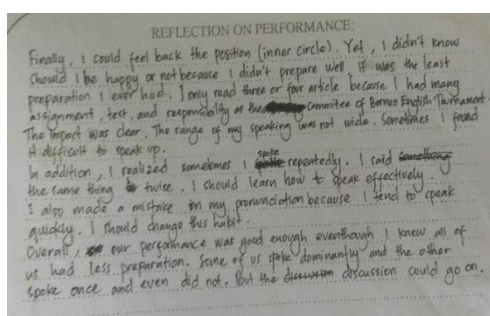 REFLECTION ON PERFORMANCE:
Finally, I could feel back the position (inner circle). Yet, I didn't know
should I be happy or not because I didn't prepare well, it was the least
preparation I ever had. I only read three or four article because I had many
assignment, test, and responsibility as the Committee of Borneo English Tournament.
The impact was clear. The range of my speaking was not wide. Sometimes I found
it difficult to speak up.
In addition, I realized sometimes I spoke repeatedly. I said
the same thing twice. I should learn how to speak effectively.
I also made a mistake in my pronunciation because I tend to speak
quickly. I should change this habit.
Overall, our performance was good enough eventhough I knew all of
us had less preparation. Some of us spoke dominantly and the other
spoke once and even did not. But the discussion could go on.